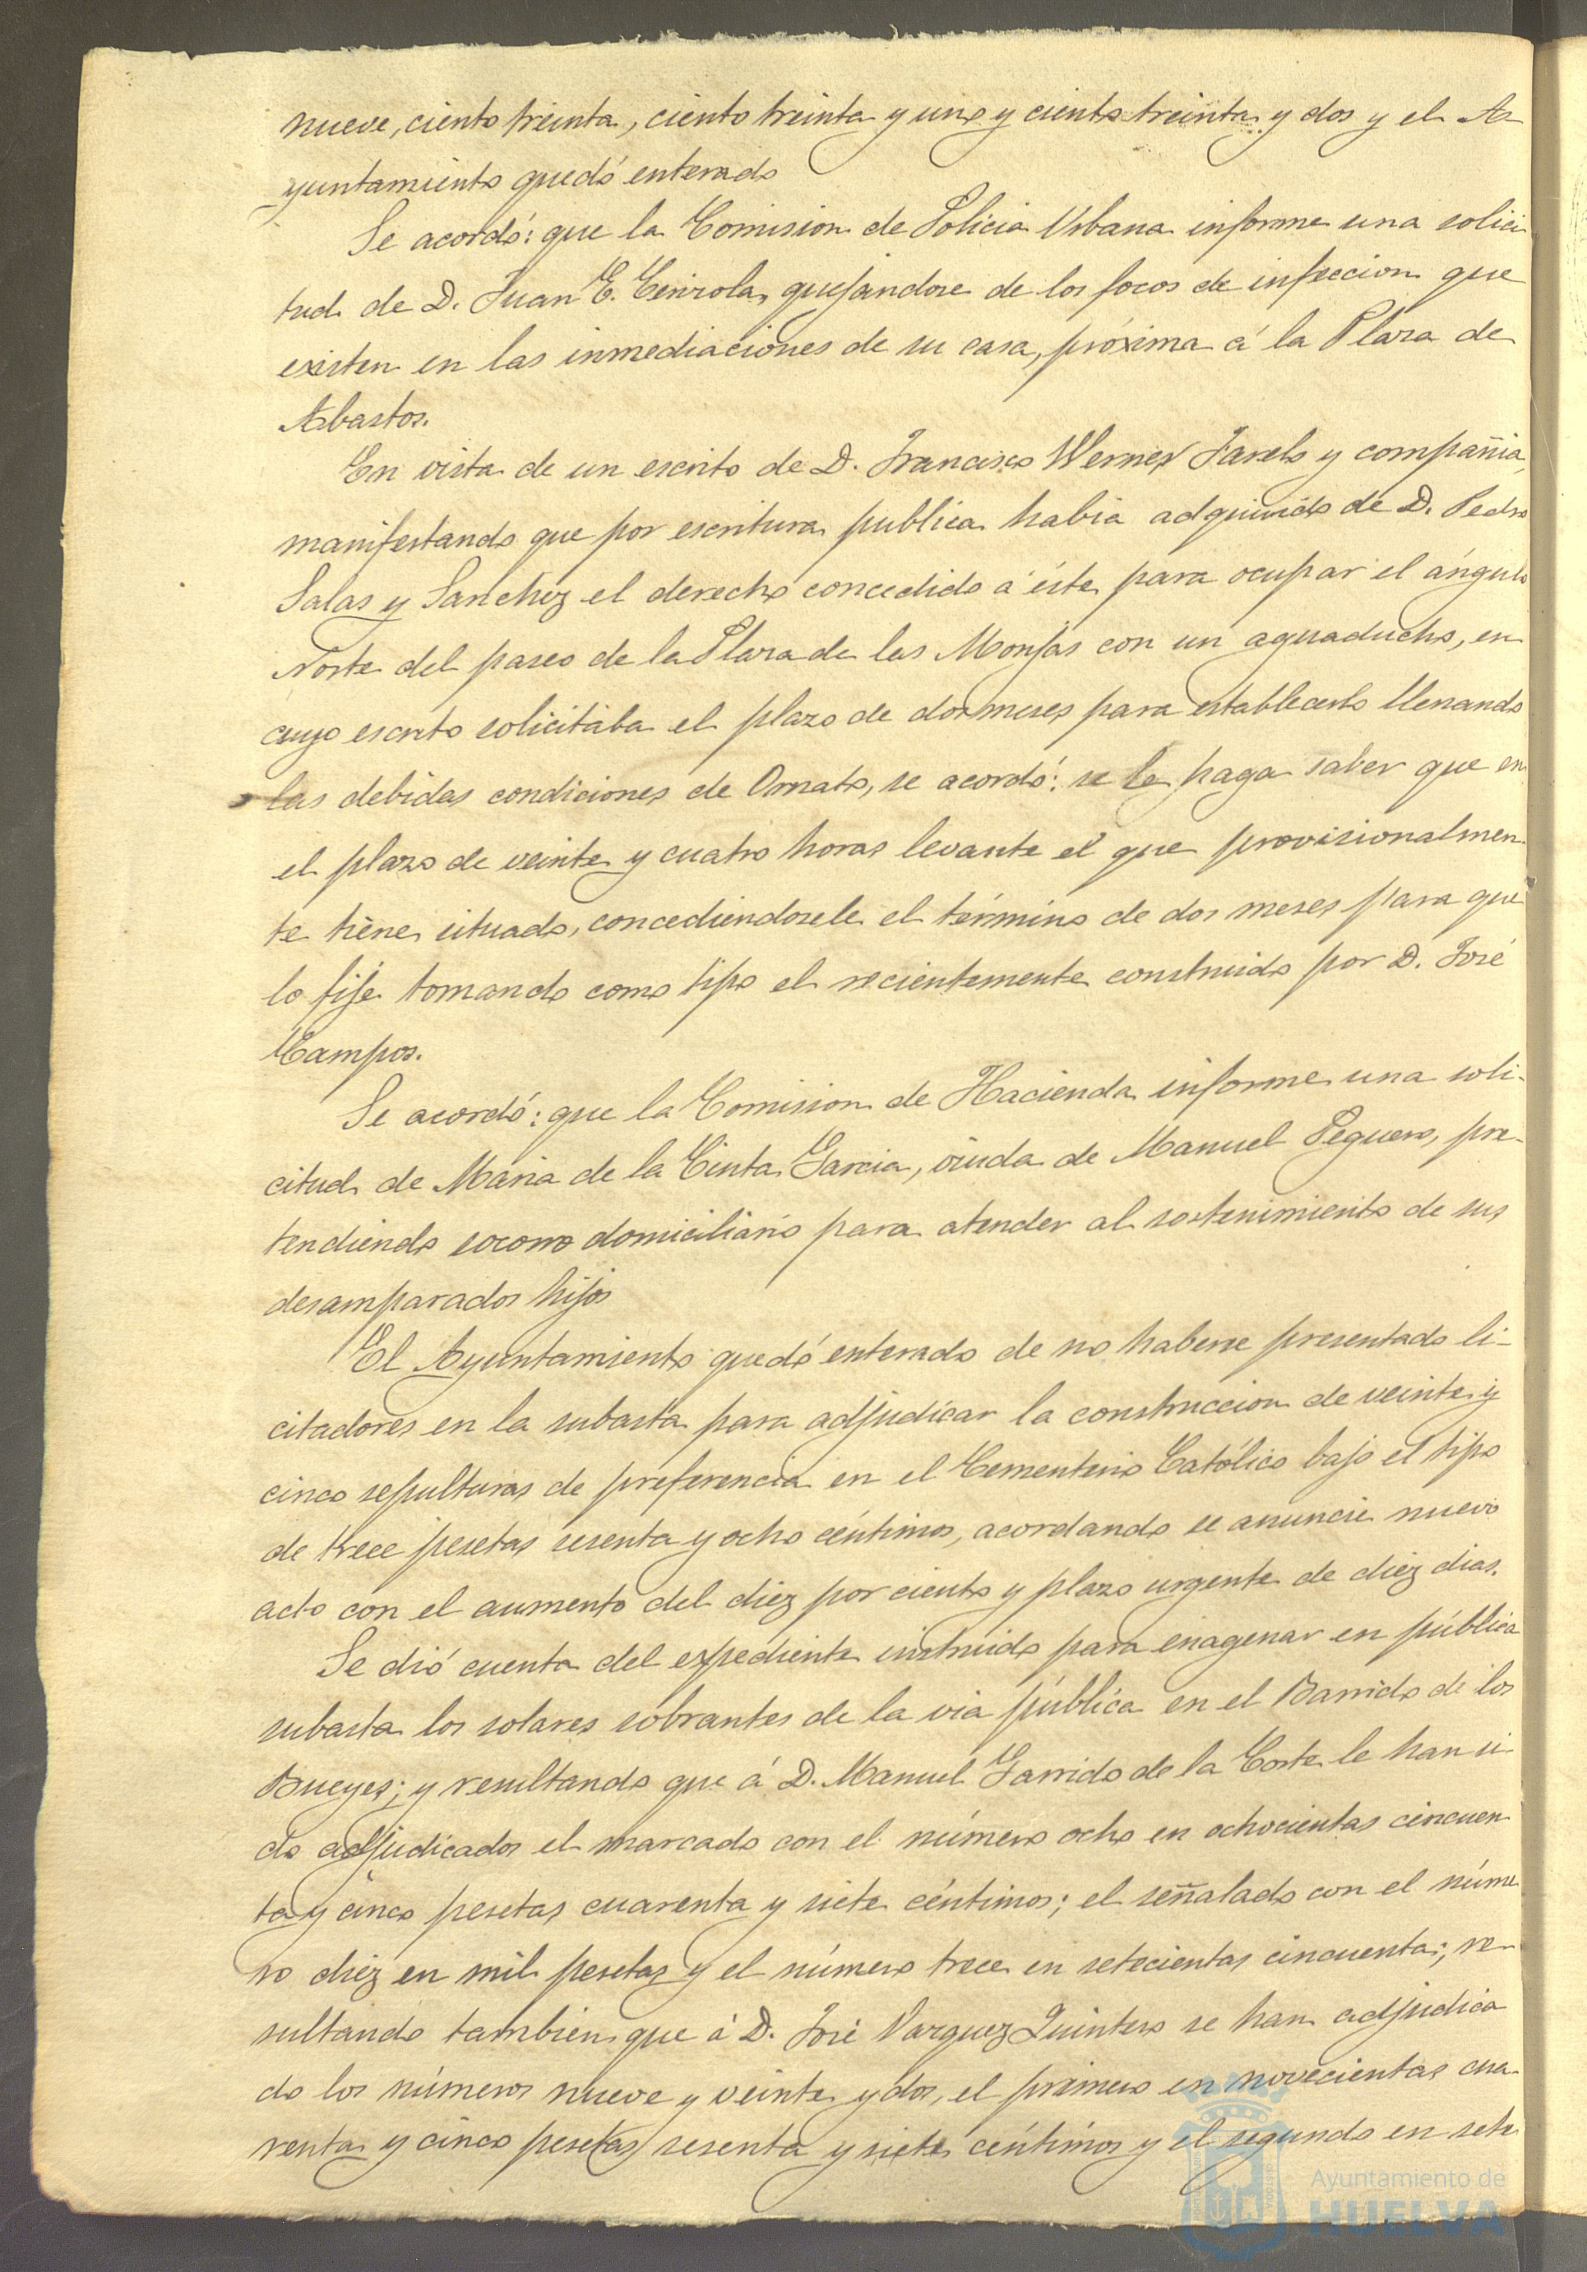 nueve, ciento treinta, ciento treinta y uno y ciento treinta y dos y el A-
yuntamiento quedó enterado
Se acordó: que la Comision de Policia Urbana informe una solici
tud de D. Juan E. quejandose de los focos de infeccion que
existen en las inmediaciones de su casa, próxima á la Plaza de
Abastos.
En vista de un escrito de D. Francisco Werner y compañia,
manifestando que por escritura publica habia adquirido de D. Pedro
Salas y Sanchez el derecho concedido á éste para ocupar el ángulo
Norte del paseo de la Plaza de las Monjas con un aguaducho, en
cuyo escrito solicitába el plazo de dos meses para establecerlo llenando
las debidas condiciones de Ornato, se acordó: se le haga saber que en
el plazo de veinte y cuatro horas levante el que provisionalmen
te tiene situado, concediendosele el término de dos meses para que
lo fije tomando como tipo el recientemente construido por D. José
Campos.
Se acordó: que la Comision de Hacienda informe una soli-
citud de Maria de la Cinta Garcia, viuda de Manuel Peguero, pre-
tendiendo socorro domiciliario para atender al sostenimiento de sus
desamparados hijos
El Ayuntamiento quedó enterado de no haberse presentado li-
citadores en la subasta para adjudicar la construccion de veinte y
cinco sepulturas de preferencia en el Cementerio Católico bajo el tipo
de trece pesetas sesenta y ocho céntimos, acordando se anuncie nuevo
acto con el aumento del diez por ciento y plazo urgente de diez dias.
Se dió cuenta del expediente instruido para enagenar en pública
subasta los solares sobrantes de la via pública en el Barrido de los
Bueyes; y resultando que á D. Manuel Garrido de la Corte le han si-
do adjudicados el marcado con el número ocho en ochocientas cincuen
ta y cinco pesetas cuarenta y siete céntimos; el señalado con el núme
ro diez en mil pesetas y el número trece en setecientas cincuenta; re-
sultando tambien que á D. José Vazquez Quintero se han adjudica
do los números nueve y veinte y dos, el primero en novecientas cua-
renta y cinco pesetas sesenta y siete céntimos y el segundo en sete
Ayuntamiento de
HUELVA